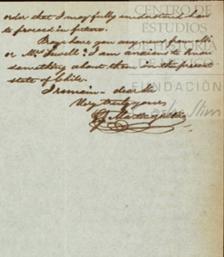 order that I may fully understand how
to proceed in future.
Pray have you any news from Mr.
or Mrs. Sewell? I am anxious to know
something about them in the present
state of Chile.
I remain - dear Sir
Very truly yours
CENTRO DE
ESTUDIOS
DE HISTORIA
FUNDACIÓN